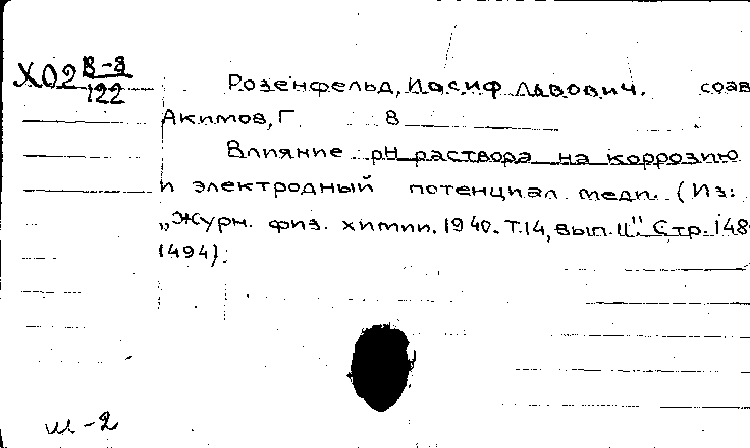 Х02 В-8/122
Розенфельд, Иосиф Львович. соав
Акимов, Г В
Влияние pH раствора на коррозию
и электродный потенциал меди. (Из:
„Журн. физ. химии. 1940. Т.14, вып. 11". Стр. 148
1494).
ш-2